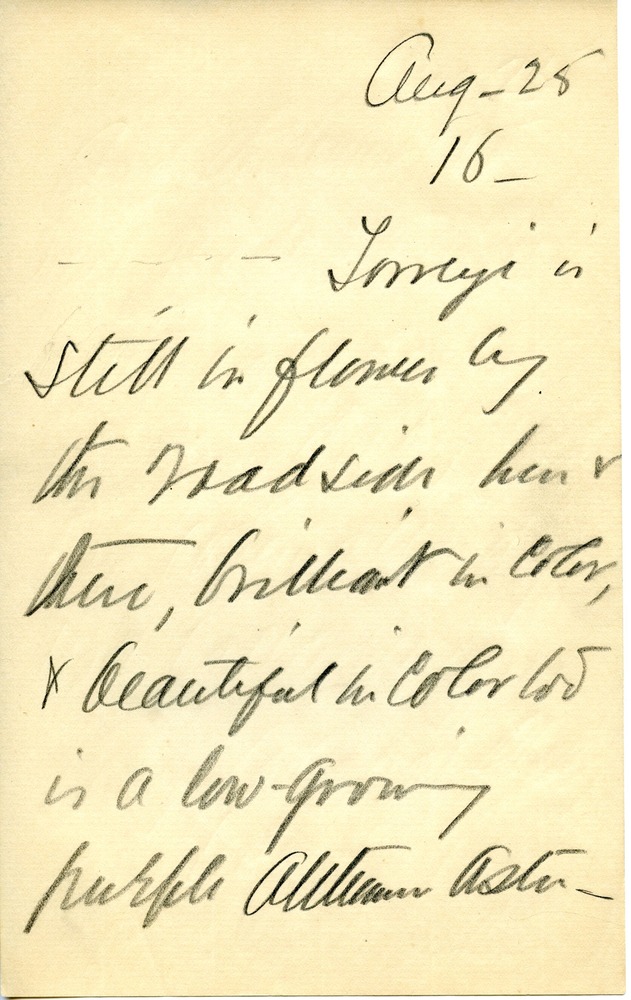 Aug - 28
16 -
Torreyi is
still in flower by
the roadside here &
there, brilliant in color,
& beautiful in color too
is a low-growing
purple Autumn Aster -